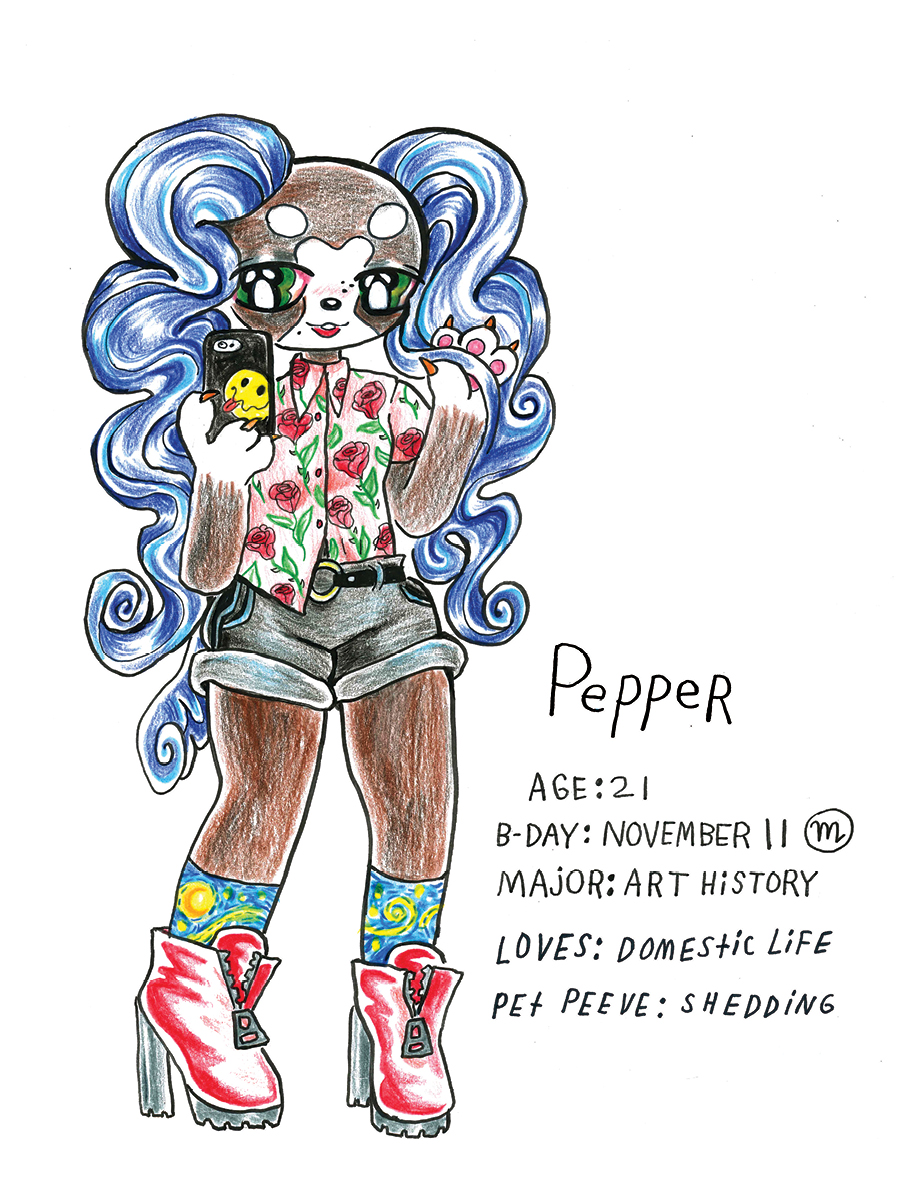 Pepper
AGE: 21
B-DAY: NOVEMBER 11 m
MAJOR: ART HiSTORY
LOVES: DOMEStiC LiFE
PEt PEEVE: SHEDDiNG